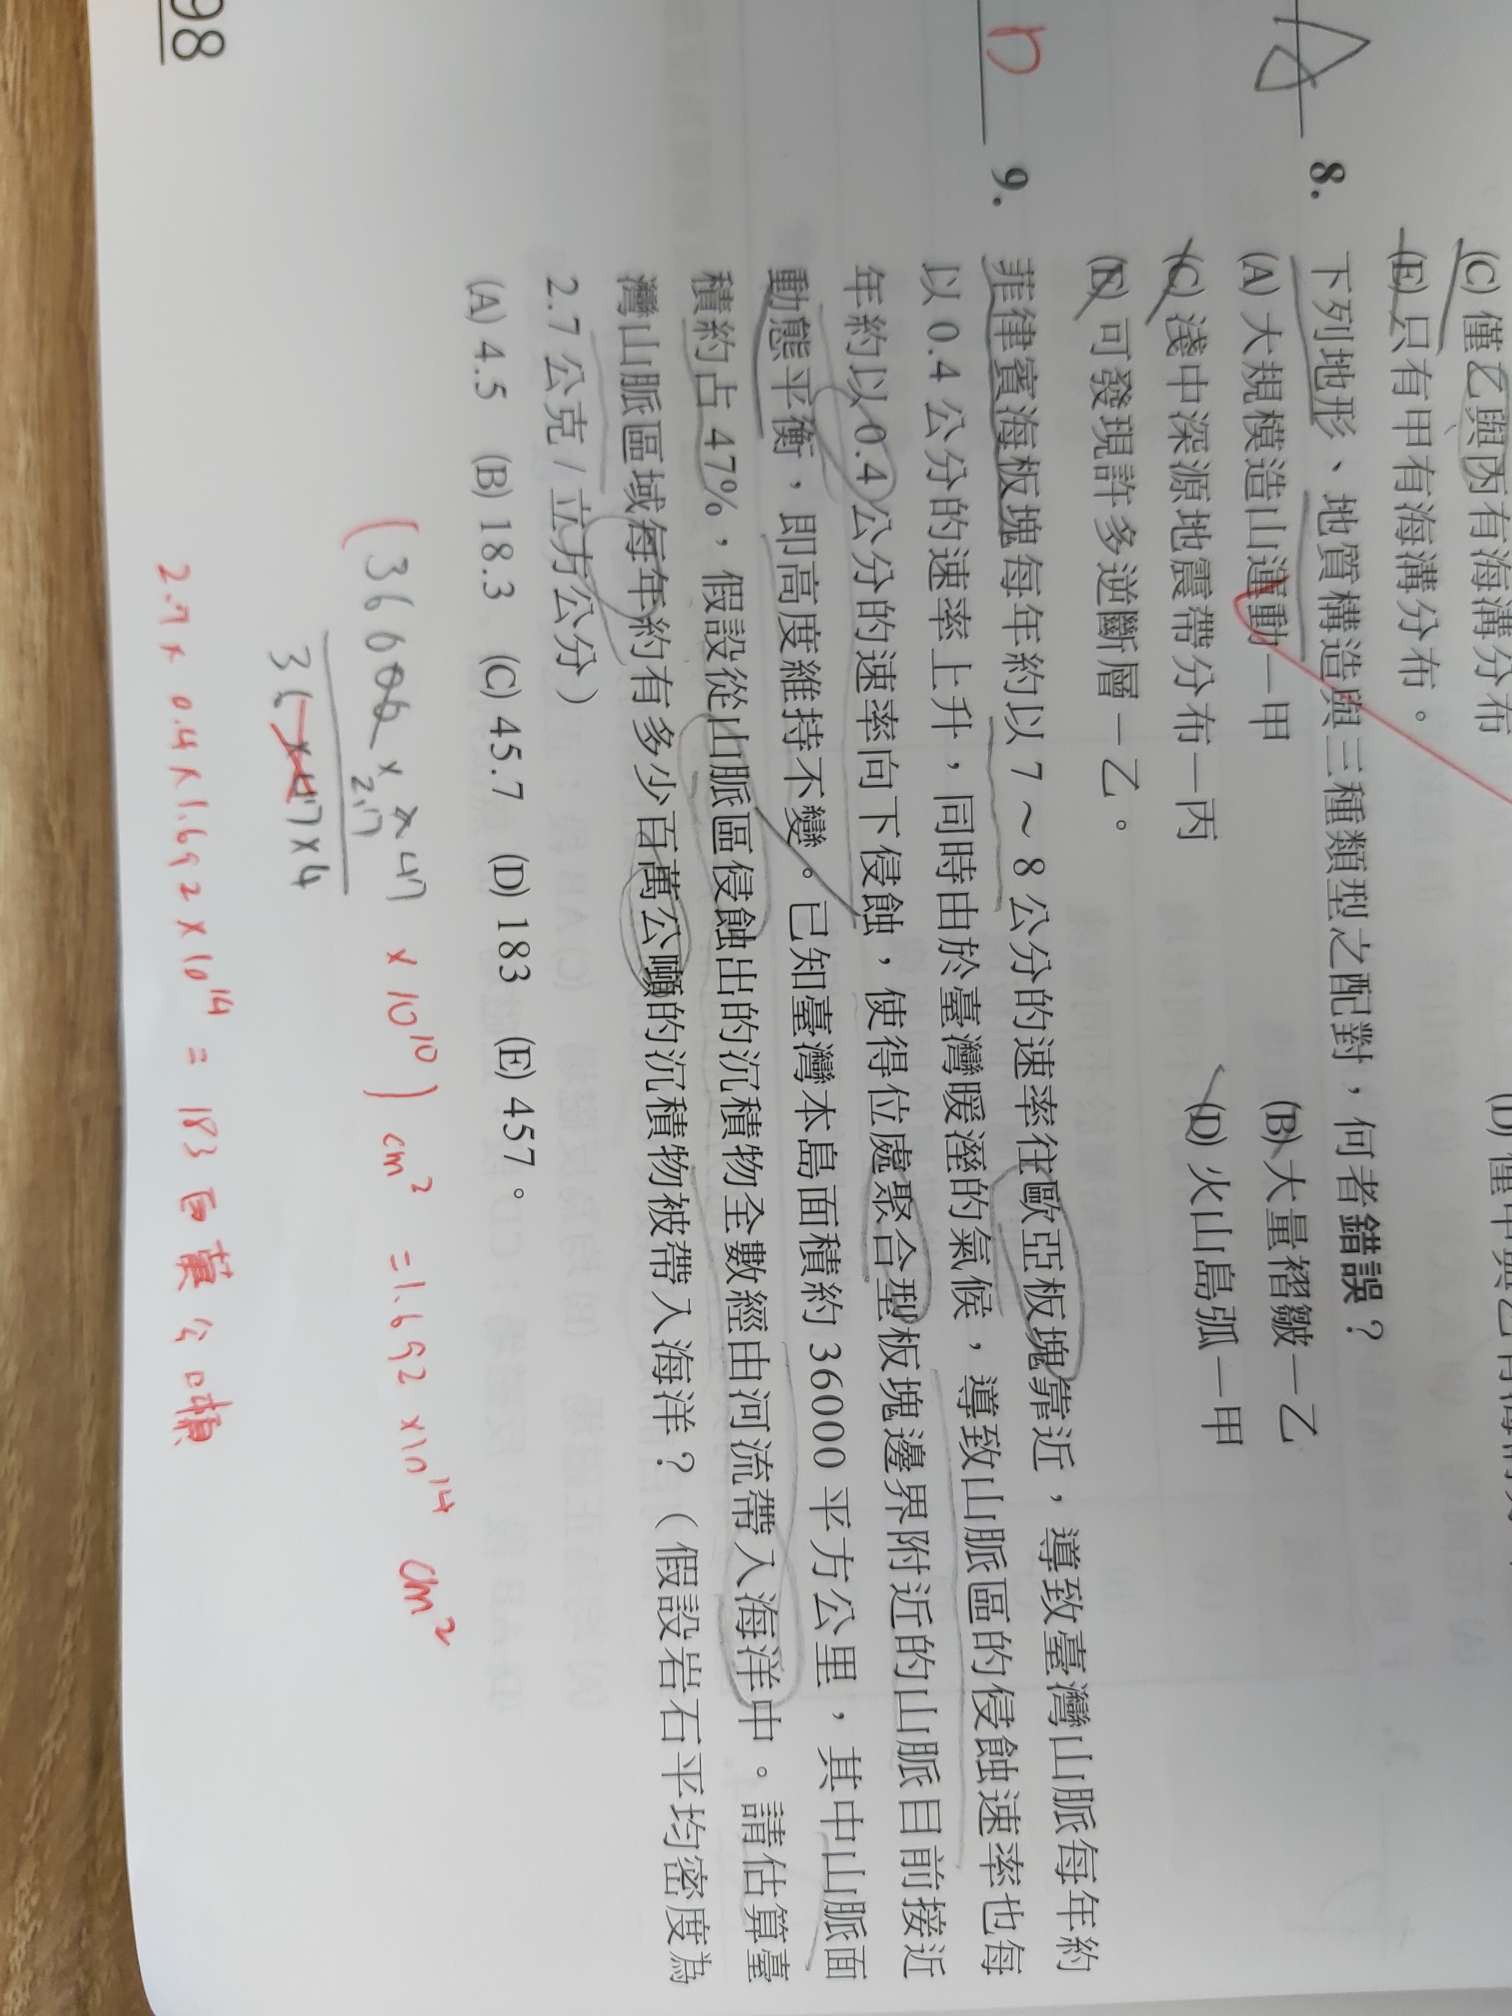 (C) 僅乙與丙有海溝分布
(E) 只有甲有海溝分布。
A 8. 下列地形、地質構造與三種類型之配對，何者錯誤？
(A) 大規模造山運動－甲 (B) 大量褶皺－乙
(C) 淺中深源地震帶分布－丙 (D) 火山島弧－甲
(E) 可發現許多逆斷層－乙。
D 9. 菲律賓海板塊每年約以 7～8 公分的速率往歐亞板塊靠近，導致臺灣山脈每年約
以 0.4 公分的速率上升，同時由於臺灣暖溼的氣候，導致山脈區的侵蝕速率也每
年約以 0.4 公分的速率向下侵蝕，使得位處聚合型板塊邊界附近的山脈目前接近
動態平衡，即高度維持不變。已知臺灣本島面積約 36000 平方公里，其中山脈面
積約占 47%，假設從山脈區侵蝕出的沉積物全數經由河流帶入海洋中。請估算臺
灣山脈區域每年約有多少百萬公噸的沉積物被帶入海洋？（假設岩石平均密度為
2.7 公克 / 立方公分）
(A) 4.5 (B) 18.3 (C) 45.7 (D) 183 (E) 457。
× 47 × 10¹⁰) cm² = 1.692 × 10¹⁴ cm²
2.7
2.7 × 0.4 × 1.692 × 10¹⁴ = 183 百萬公噸
98